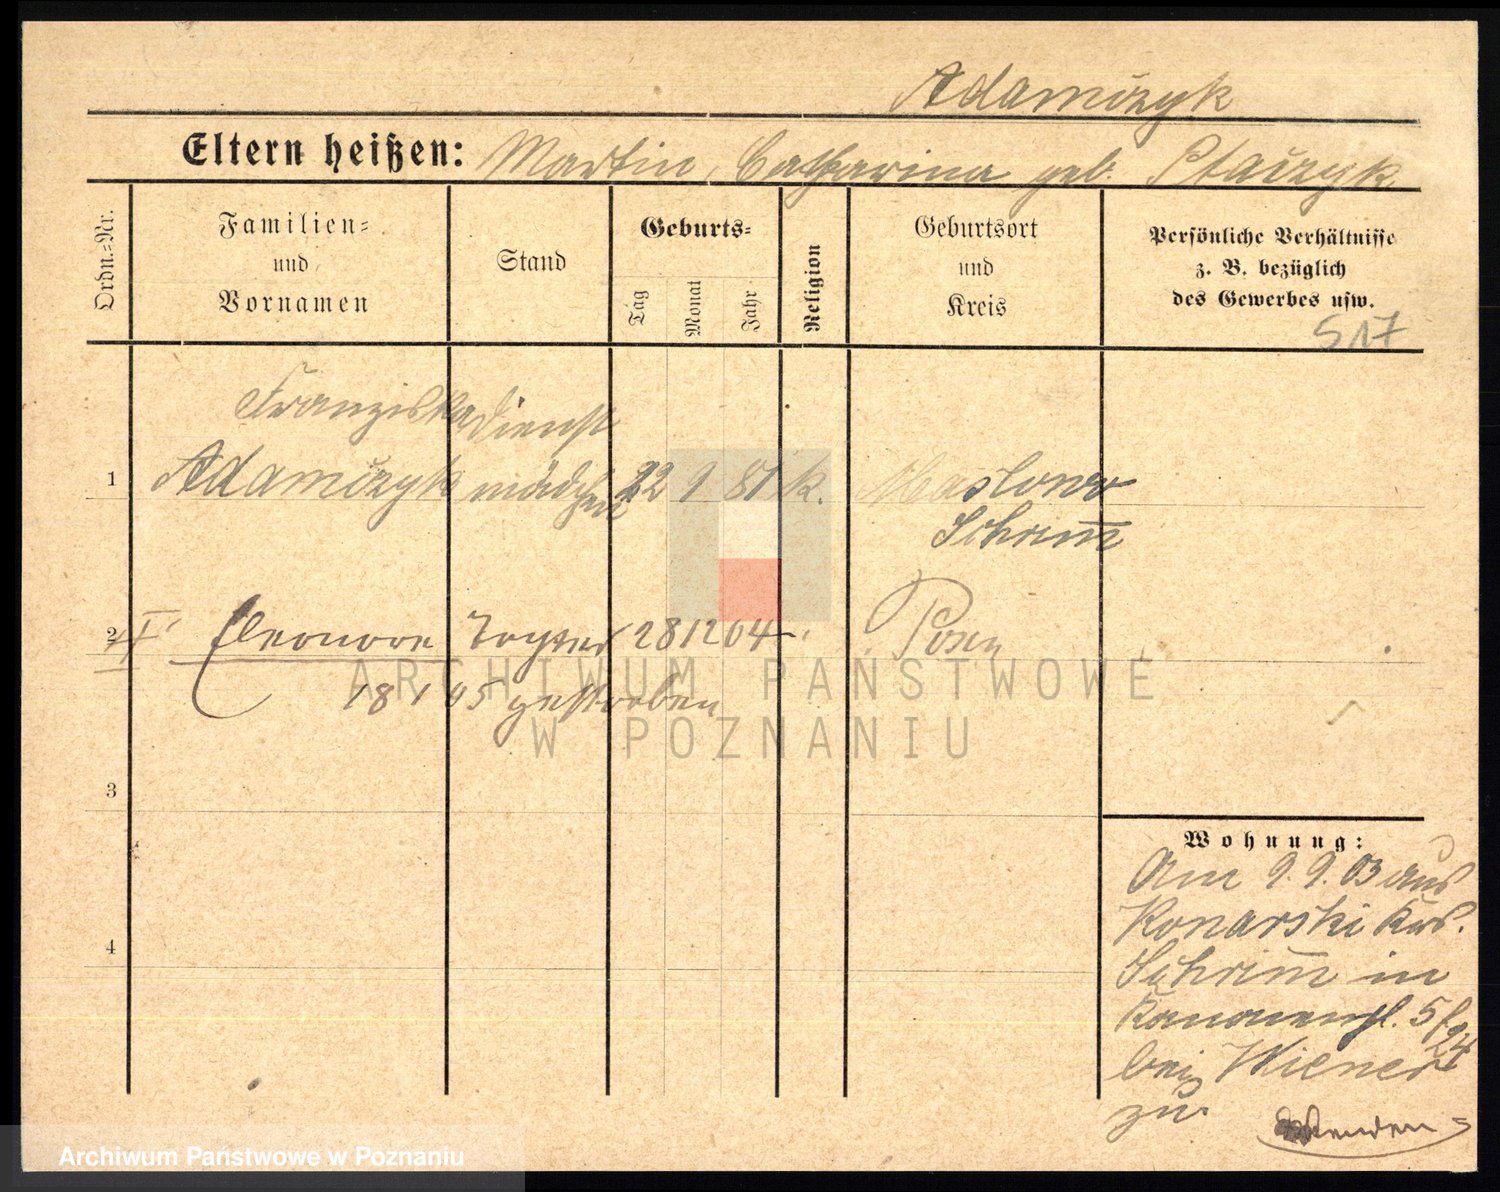 Adamczyk
Eltern heißen: Martin, Catharina geb. Ptaczyk
Ordn.=Nr.
Familien=
und
Vornamen
Stand
Geburts=
Tag
Monat
Jahr
Religion
Geburtsort
und
Kreis
Persönliche Verhältnisse
z. B. bezüglich
des Gewerbes usw.
517
Franziska Dienst
1 Adamczyk mädchen 22 9 81 k. Maslowo
Schrim̅
2 Eleonore Tochter 28 12 04 Posen
18 1 05 gestorben
3
4
Wohnung:
Am 9.9.03 aus
Konarski Krs.
Schrim̅ in
Kanonenpl. 5
bei Wiener
zu.
ARCHIWUM PAŃSTWOWE
W POZNANIU
Archiwum Państwowe w Poznaniu